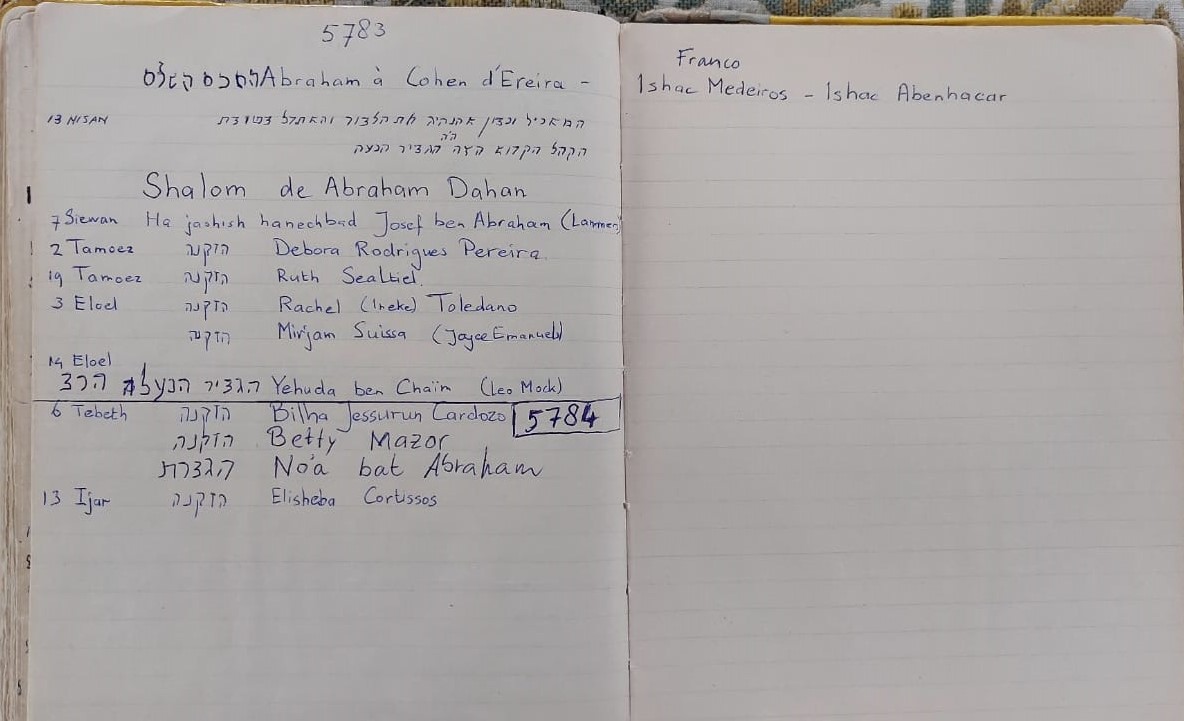 5783
Abraham à Cohen d'Ereira -
13 NISAN
הקהל הקדוש הזה
Shalom de Abraham Dahan
7 Siewan Ha jashish hanechbad Josef ben Abraham (Lammers)
2 Tamoez הזקנה Debora Rodrigues Pereira
19 Tamoez הזקנה Ruth Sealtiel.
3 Eloel הזקנה Rachel (Ineke) Toledano
הזקנה Mirjam Suissa (Joyce Emanuel)
14 Eloel
הגביר הנעלה Yehuda ben Chaïm (Leo Mock)
6 Tebeth הזקנה Bilha Jessurun Cardozo 5784
הזקנה Betty Mazor
הגברת No'a bat Abraham
13 Ijar הזקנה Elisheba Cortissos
Franco
Ishac Medeiros - Ishac Abenhacar